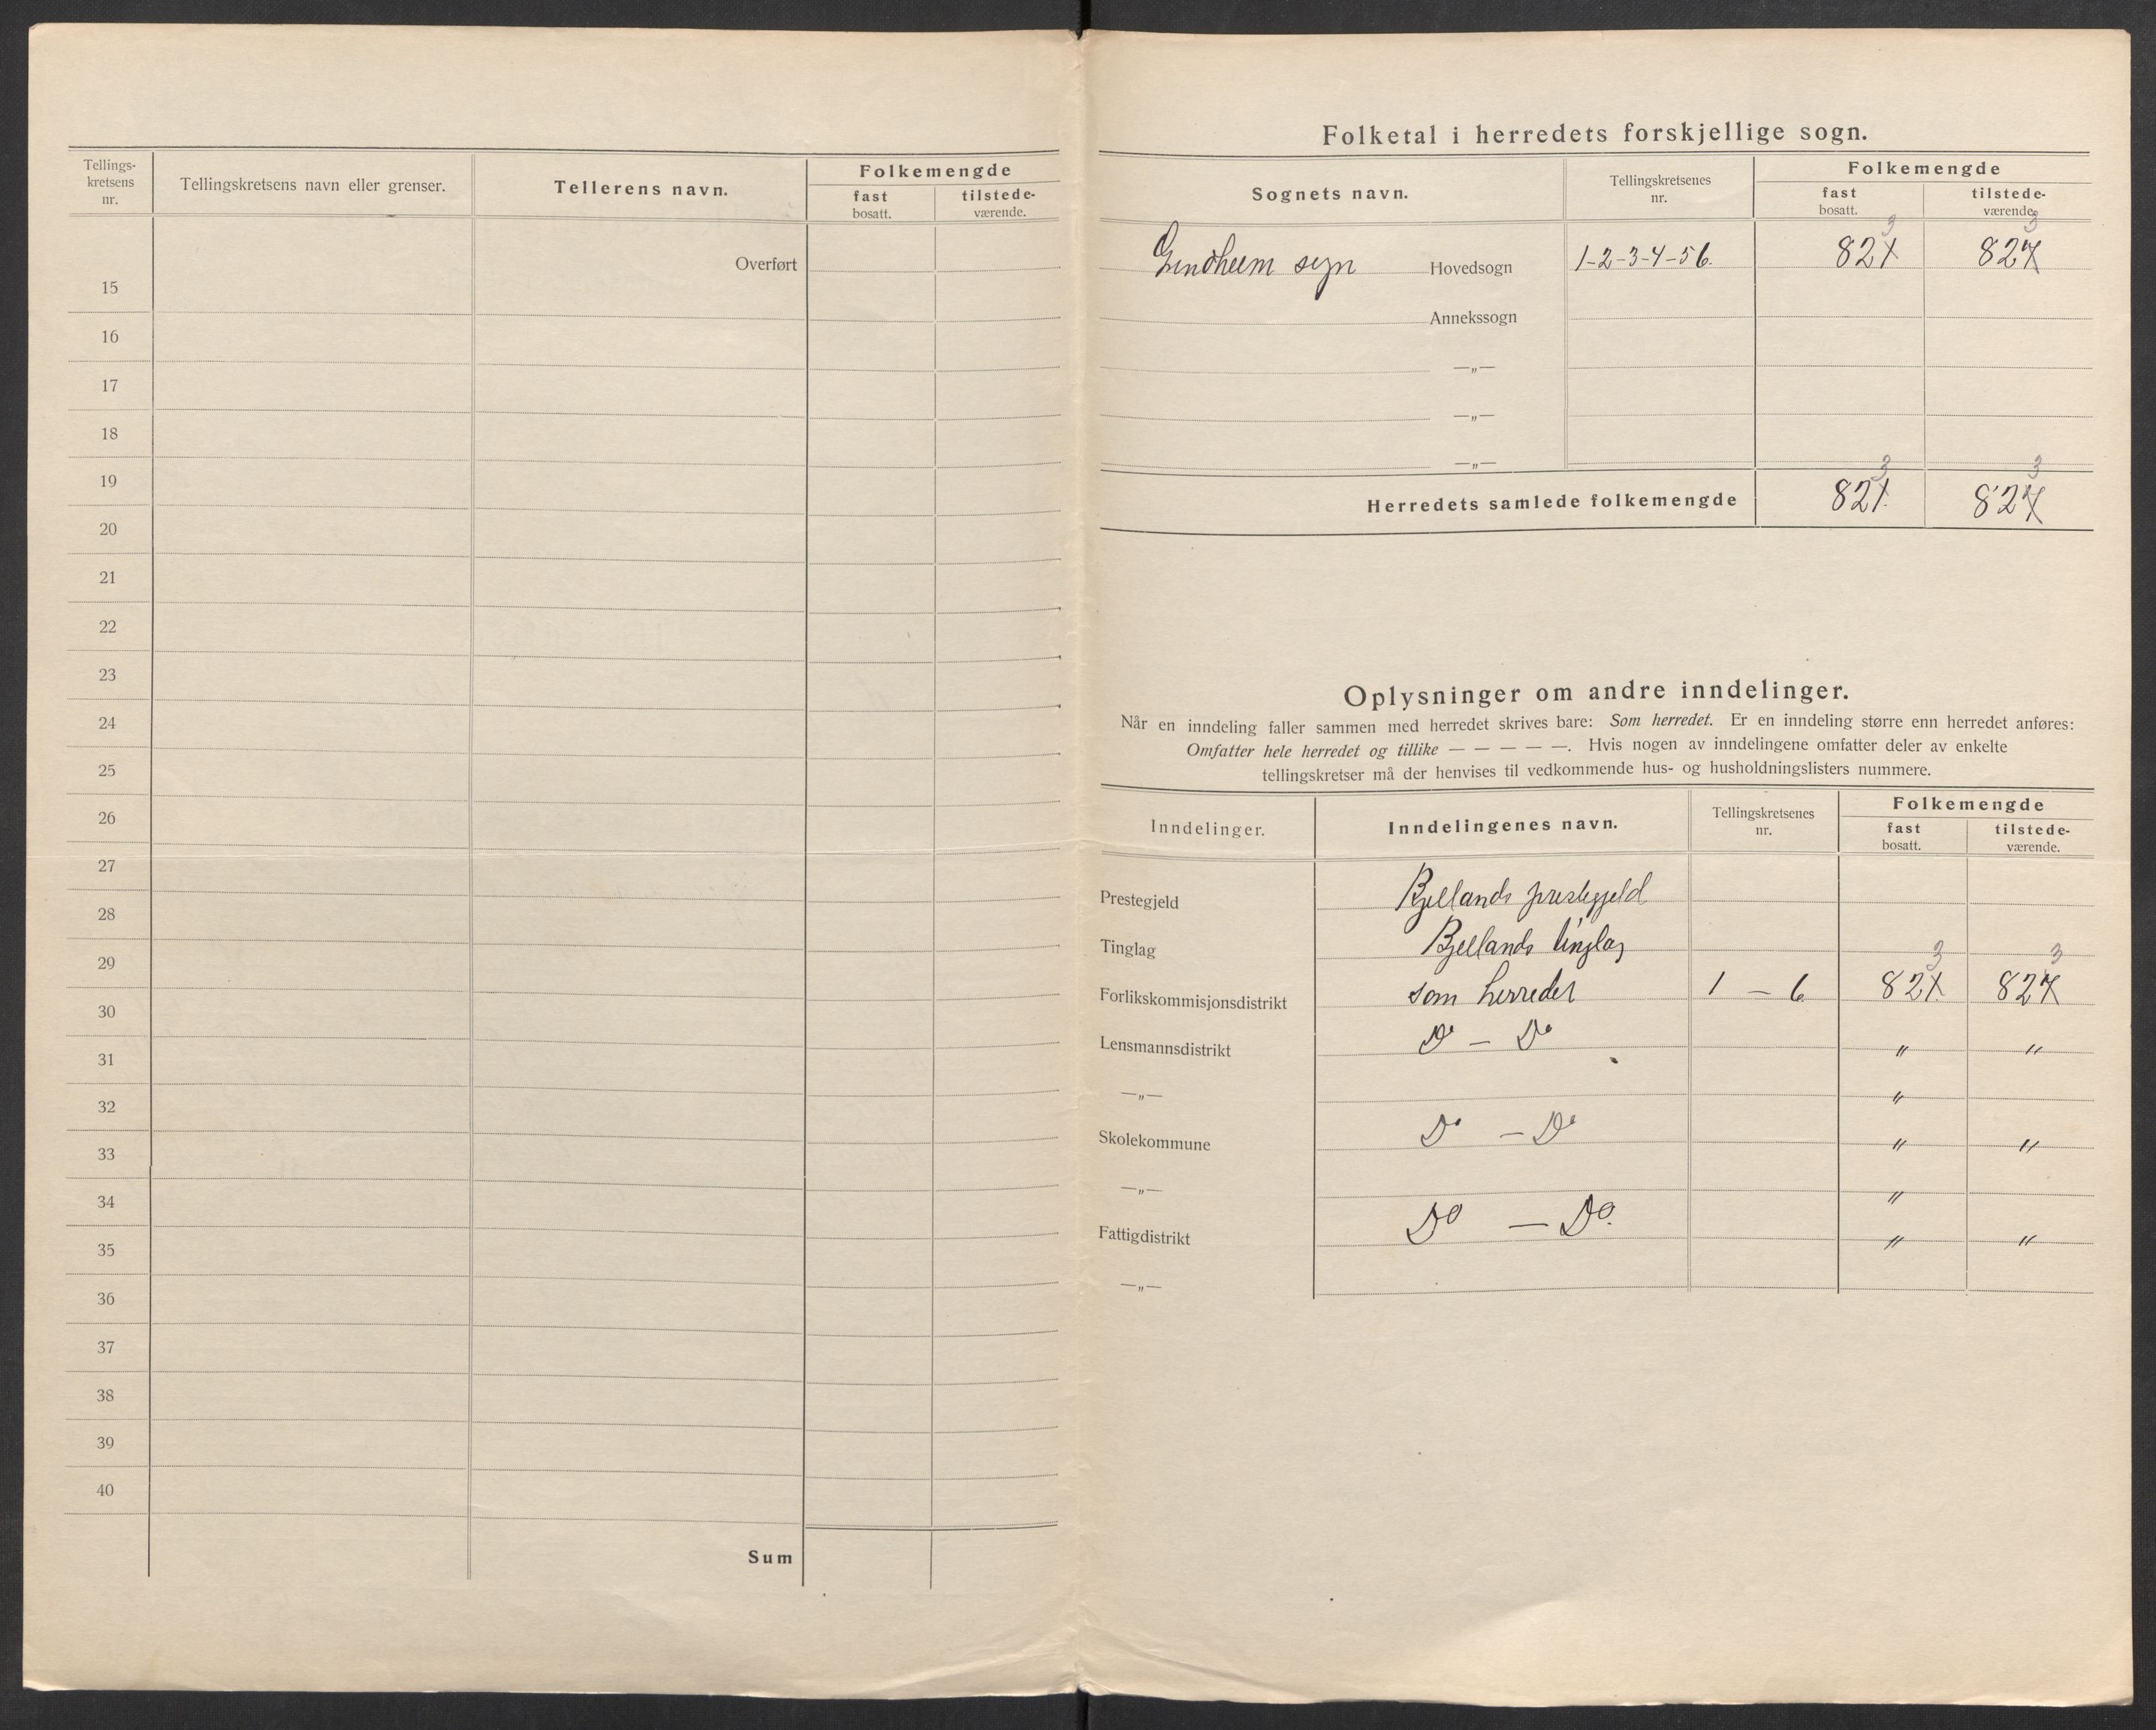 Tellings-
kretsens
nr.
Tellingskretsens navn eller grenser.
Tellerens navn.
Folkemengde
fast
bosatt.
tilstede-
værende.
Overført
15
16
17
18
19
20
21
22
23
24
25
26
27
28
29
30
31
32
33
34
35
36
37
38
39
40
Sum
Folketal i herredets forskjellige sogn.
Sognets navn.
Tellingskretsenes
nr.
Folkemengde
fast
bosatt.
tilstede-
værende.
3 3
Grindheim sogn Hovedsogn 1-2-3-4-5 6. 821 827
Annekssogn
—„—
—„—
—„—
3 3
Herredets samlede folkemengde 821 827
Oplysninger om andre inndelinger.
Når en inndeling faller sammen med herredet skrives bare: Som herredet. Er en inndeling større enn herredet anføres:
Omfatter hele herredet og tillike — — — — —. Hvis nogen av inndelingene omfatter deler av enkelte
tellingskretser må der henvises til vedkommende hus- og husholdningslisters nummere.
Inndelinger.
Inndelingenes navn.
Tellingskretsenes
nr.
Folkemengde
fast
bosatt.
tilstede-
værende.
Prestegjeld Bjellands prestegjeld
Tinglag Bjellands tinglag
3 3
Forlikskommisjonsdistrikt som herredet 1 — 6 821 827
Lensmannsdistrikt Do — Do " "
—„— "
Skolekommune Do — Do " "
—„— "
Fattigdistrikt Do — Do. " "
—„—